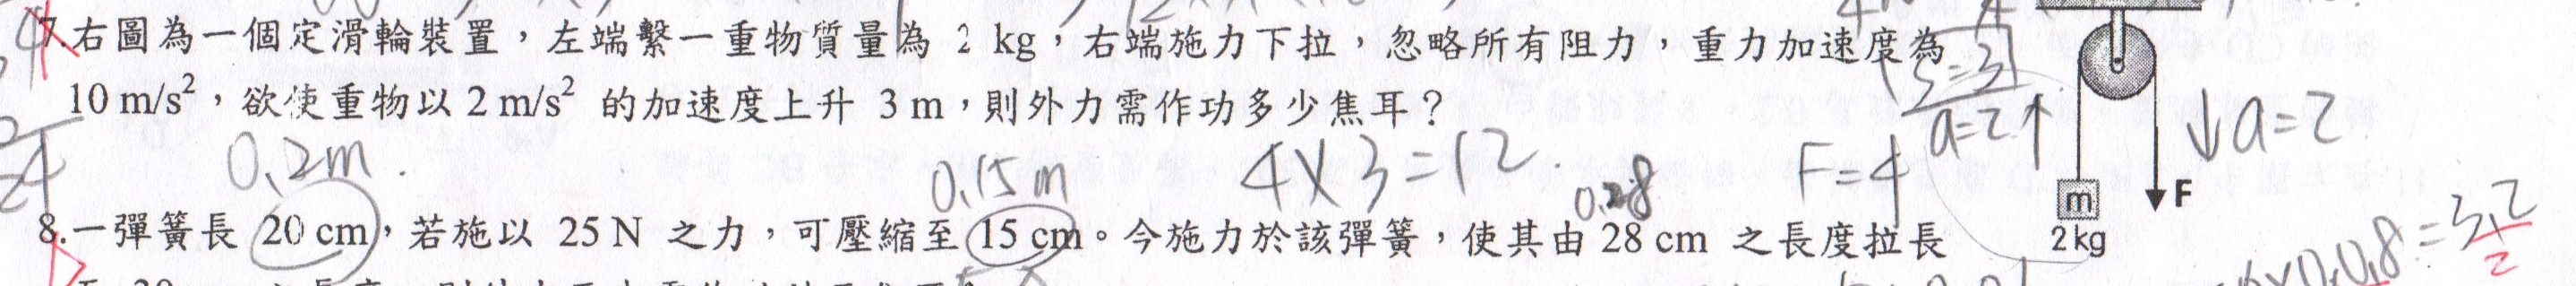 7.右圖為一個定滑輪裝置，左端繫一重物質量為 2 kg，右端施力下拉，忽略所有阻力，重力加速度為
10 m/s²，欲使重物以 2 m/s² 的加速度上升 3 m，則外力需作功多少焦耳？
S=3
a=2↑
↓a=2
0.2m.
0.15m
4×3=12.
0.28
F=4
m
F
2kg
8.一彈簧長 20 cm，若施以 25 N 之力，可壓縮至 15 cm。今施力於該彈簧，使其由 28 cm 之長度拉長